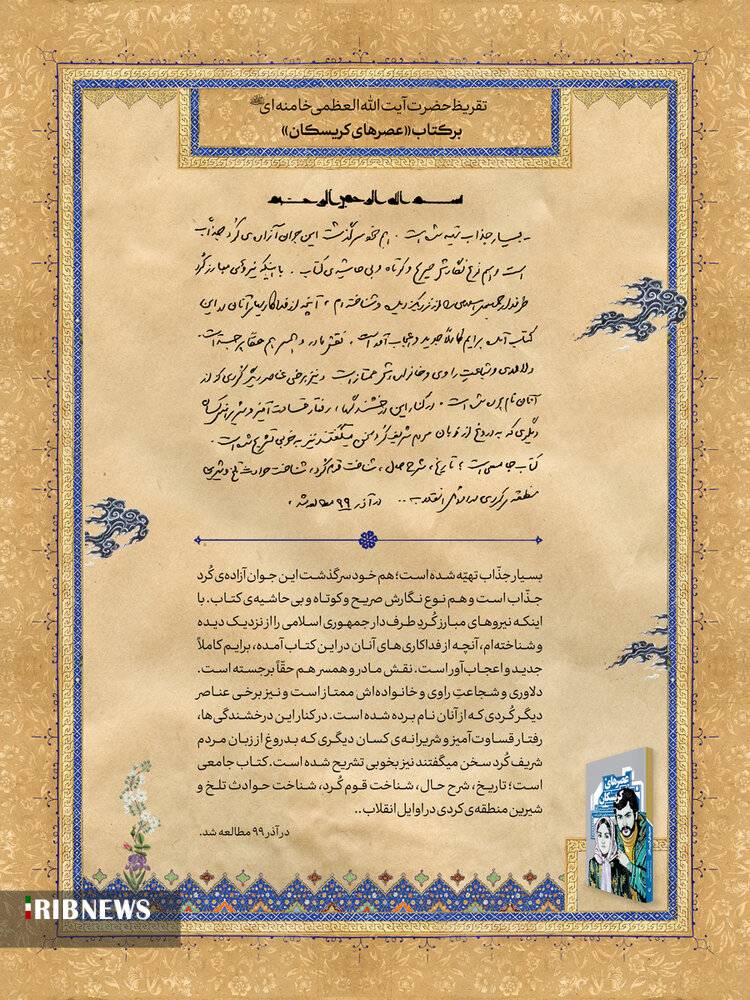 تقریظ حضرت آیت الله العظمی خامنه ای
بر کتاب «عصرهای کریسکان»
بسم الله الرحمن الرحیم
- بسیار جذاب تهیه شده است . هم خود سرگذشت این جوان آزاده‌ی کُرد جذّاب
است و هم نوع نگارش صریح و کوتاه و بی حاشیه‌ی کتاب . با اینکه نیروهای مبارز کُرد
طرفدار جمهوری اسلامی را از نزدیک دیده و شناخته ام ، آنچه از فداکاریهای آنان در این
کتاب آمده برایم کاملاً جدید و اعجاب آور است . نقش مادر و همسر هم حقّاً برجسته است .
دلاوری و شجاعتِ راوی و خانواده اش ممتاز است و نیز برخی عناصر دیگر کُردی که از
آنان نام برده شده است . در کنار این درخشندگیها ، رفتار قساوت آمیز و شریرانه‌ی کسان
دیگری که به دروغ از زبان مردم شریف کُرد سخن میگفتند نیز به خوبی تشریح شده است .
کتاب جامعی است ؛ تاریخ ، شرح حال ، شناخت قوم کُرد ، شناخت حوادث تلخ و شیرین
منطقه‌ی کردی در اوائل انقلاب .. در آذر ۹۹ مطالعه شد .
بسیار جذّاب تهیّه شده است؛ هم خود سرگذشت این جوان آزاده‌ی کُرد
جذاب است و هم نوع نگارش صریح و کوتاه و بی حاشیه‌ی کتاب. با
اینکه نیروهای مبارز کُردِ طرف‌دار جمهوری اسلامی را از نزدیک دیده
و شناخته‌ام، آنچه از فداکاری های آنان در این کتاب آمده، برایم کاملاً
جدید و اعجاب‌آور است. نقش مادر و همسر هم حقّاً برجسته است.
دلاوری و شجاعتِ راوی و خانواده‌اش ممتاز است و نیز برخی عناصر
دیگر کُردی که از آنان نام برده شده است. در کنار این درخشندگی ها،
رفتار قساوت‌آمیز و شریرانه‌ی کسان دیگری که بدروغ از زبان مردم
شریف کُرد سخن میگفتند نیز بخوبی تشریح شده است. کتاب جامعی
است؛ تاریخ، شرح حال، شناخت قوم کُرد، شناخت حوادث تلخ و
شیرین منطقه‌ی کردی در اوایل انقلاب..
در آذر ۹۹ مطالعه شد.
عصرهای
کریسکان
IRIBNEWS